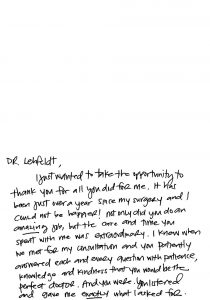 DR. Lehfeldt,
I just wanted to take the opportunity to
thank you for all you did for me. It has
been just over a year since my surgery and I
could not be happier! Not only did you do an
amazing job, but the care and time you
spent with me was extraordinary. I knew when
we met for my consultation and you patiently
answered each and every question with patience,
knowledge and kindness that you would be the
perfect doctor. And you were. You listened
and gave me exactly what I asked for.